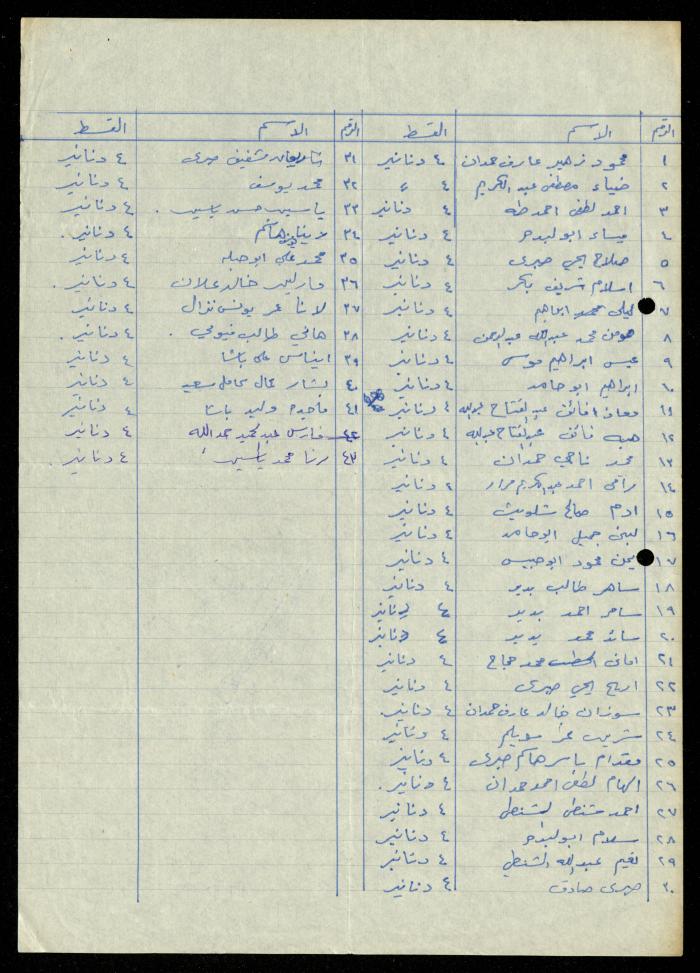 الرقم الاسم القسط
١ محمود زهير عارف حمدان ٤ دنانير
٢ ضياء مصطفى عبد الكريم ٤ "
٣ احمد لطفي احمد طه ٤ دنانير
٤ ميساء ابو لبدهـ ٤ دنانير
٥ صلاح يحيى صبرى ٤ دنانير
٦ اسلام شريف بكر ٤ دنانير
٧ ليلى محمد ابراهيم ٤ دنانير
٨ محمد عبد الله عبد الرحمن ٤ دنانير
٩ عيسى ابراهيم موسى ٤ دنانير
١٠ ابراهيم ابو حامد ٤ دنانير
١١ معاذ فائق عبد الفتاح عبد الله ٤ دنانير
١٢ هبه فائق عبد الفتاح عبد الله ٤ دنانير
١٣ محمد ناجي حمدان ٤ دنانير
١٤ رامي احمد عبد الكريم مرار ٢ دنانير
١٥ ادم صالح ٤ دنانير
١٦ لبنى جميل ابو حامد ٤ دنانير
١٧ يمن محمود ٤ دنانير
١٨ ساهر طالب بدير ٤ دنانير
١٩ سامر احمد بدير ٤ دنانير
٢٠ سائد محمد بدير ٤ دنانير
٢١ اماني محمد حجاج ٤ دنانير
٢٢ اريج يحيى صبرى ٤ دنانير
٢٣ سوزان خالد عارف حمدان ٤ دنانير.
٢٤ شرين عمر سويلم ٤ دنانير
٢٥ مقدام ياسر هاكم صبرى ٤ دنانير
٢٦ الهام لطفي احمد حمدان ٤ دنانير.
٢٧ احمد شنطي الشنطي ٤ دنانير
٢٨ سلام ابو لبدهـ ٤ دنانير
٢٩ نعيم عبد الله الشنطي ٤ دنانير
٣٠ صبرى صادق ٤ دنانير
الرقم الاسم القسط
٣١ ناريمان شفيق صبرى ٤ دنانير
٣٢ محمد يوسف ٤ دنانير
٣٣ ياسين حسن ياسين. ٤ دنانير
٣٤ لانا هاكم ٤ دنانير.
٣٥ محمد علي ابو حبله ٤ دنانير
٣٦ مارلين خالد علان ٤ دنانير.
٣٧ لانا عمر يونس نزال ٤ دنانير
٣٨ هاني طالب فيومي. ٤ دنانير.
٣٩ ايناس علي باشا ٤ دنانير
٤٠ بشار جمال كامل سعيد ٤ دنانير
٤١ ماجده وليد باشا ٤ دنانير
٤٢ فارس عبد الحميد حمد الله ٤ دنانير
٤٣ رنا محمد ياسين ٤ دنانير.